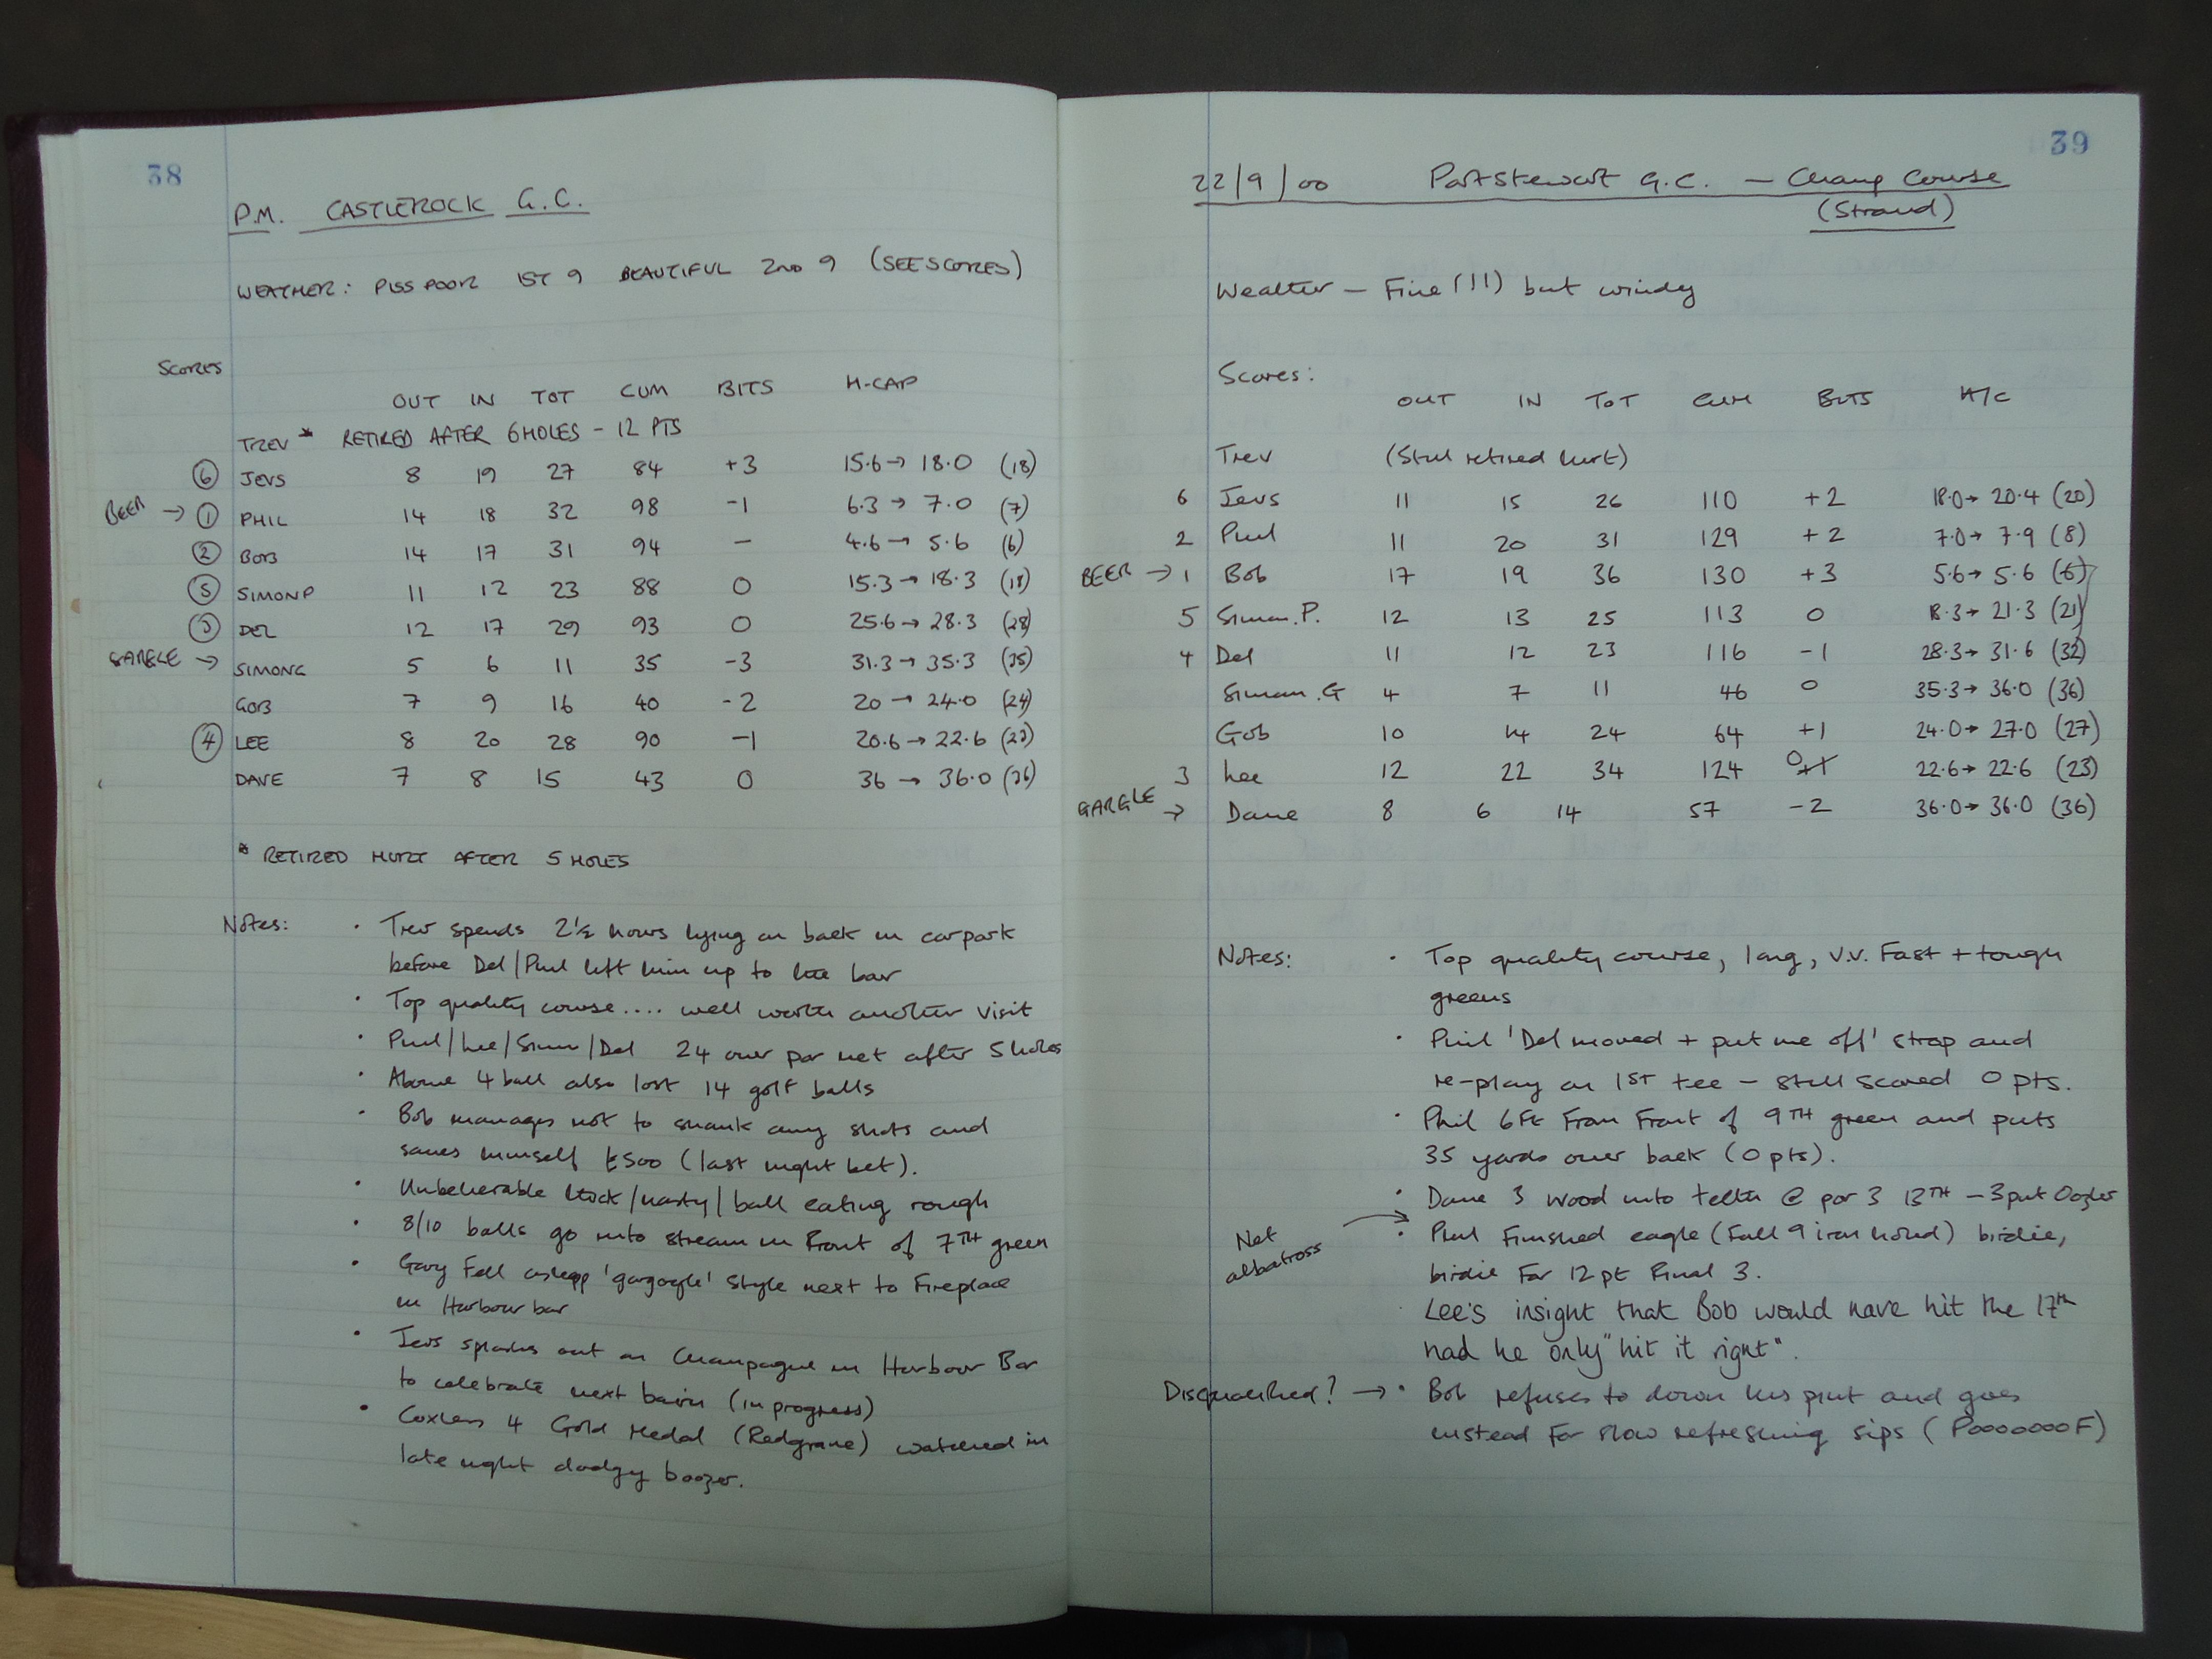 38
P.M. CASTLEROCK G.C.
WEATHER: PISS POOR 1ST 9 BEAUTIFUL 2ND 9 (SEE SCORES)
SCORES
OUT IN TOT CUM BITS H-CAP
TREV * RETIRED AFTER 6 HOLES - 12 PTS
⑥ JEVS 8 19 27 84 +3 15.6 → 18.0 (18)
BEER → ① PHIL 14 18 32 98 -1 6.3 → 7.0 (7)
② BOB 14 17 31 94 - 4.6 → 5.6 (6)
⑤ SIMON P 11 12 23 88 0 15.3 → 18.3 (18)
③ DEL 12 17 29 93 0 25.6 → 28.3 (28)
GARGLE → SIMON G 5 6 11 35 -3 31.3 → 35.3 (35)
GOB 7 9 16 40 -2 20 → 24.0 (24)
④ LEE 8 20 28 90 -1 20.6 → 22.6 (23)
DAVE 7 8 15 43 0 36 → 36.0 (36)
* RETIRED HURT AFTER 5 HOLES
Notes: • Trev spends 2½ hours lying on back in carpark
before Del/Phil left him up to the bar
• Top quality course.... well worth another visit
• Phil/Lee/Simon/Del 24 over par net after 5 holes
• Above 4 ball also lost 14 golf balls
• Bob manages not to shank any shots and
saves himself £500 (last night bet).
• Unbelievable thick/nasty/ball eating rough
• 8/10 balls go into stream in front of 7TH green
• Gary Fell asleep 'gargoyle' style next to Fireplace
in Harbour bar
• Jevs splashes out on Champagne in Harbour Bar
to celebrate next bairn (in progress)
• Coxless 4 Gold Medal (Redgrave) watched in
late night dodgy boozer.
39
22/9/00 Portstewart G.C. - Champ Course
(Strand)
Weather - Fine (!!) but windy
Scores:
OUT IN TOT CUM BITS H/C
Trev (Still retired hurt)
6 Jevs 11 15 26 110 +2 18.0 → 20.4 (20)
2 Phil 11 20 31 129 +2 7.0 → 7.9 (8)
BEER → 1 Bob 17 19 36 130 +3 5.6 → 5.6 (6)
5 Simon.P. 12 13 25 113 0 18.3 → 21.3 (21)
4 Del 11 12 23 116 -1 28.3 → 31.6 (32)
Simon.G 4 7 11 46 0 35.3 → 36.0 (36)
Gob 10 14 24 64 +1 24.0 → 27.0 (27)
3 Lee 12 22 34 124 0 +1 22.6 → 22.6 (23)
GARGLE → Dave 8 6 14 57 -2 36.0 → 36.0 (36)
Notes: • Top quality course, long, v.v. Fast + tough
greens
• Phil 'Del moved + put me off' strop and
re-play on 1ST tee - still scored 0 pts.
• Phil 6Ft From Front of 9TH green and puts
35 yards over back (0 pts).
• Dave 3 wood into teeth @ par 3 13TH - 3 put
Net albatross → • Phil Finished eagle (Full 9 iron holed) birdie,
birdie For 12pt Final 3.
• Lee's insight that Bob would have hit the 17th
had he only "hit it right".
Disqualified? → • Bob refuses to down his pint and goes
instead For slow refreshing sips (PooooooooF)